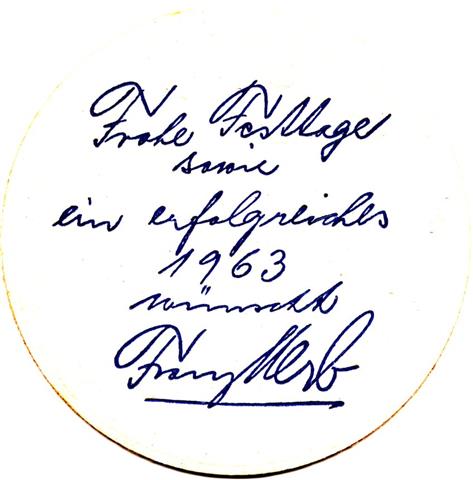 Frohe Festtage
sowie
ein erfolgreiches
1963
wünscht
Franz Herb